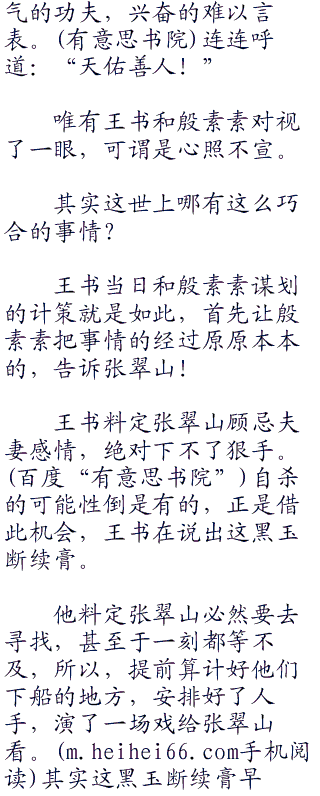 气的功夫，兴奋的难以言
表。(有意思书院)连连呼
道：“天佑善人！”
唯有王书和殷素素对视
了一眼，可谓是心照不宣。
其实这世上哪有这么巧
合的事情？
王书当日和殷素素谋划
的计策就是如此，首先让殷
素素把事情的经过原原本本
的，告诉张翠山！
王书料定张翠山顾忌夫
妻感情，绝对下不了狠手。
(百度“有意思书院”)自杀
的可能性倒是有的，正是借
此机会，王书在说出这黑玉
断续膏。
他料定张翠山必然要去
寻找，甚至于一刻都等不
及，所以，提前算计好他们
下船的地方，安排好了人
手，演了一场戏给张翠山
看。(m.heihei66.com手机阅
读)其实这黑玉断续膏早